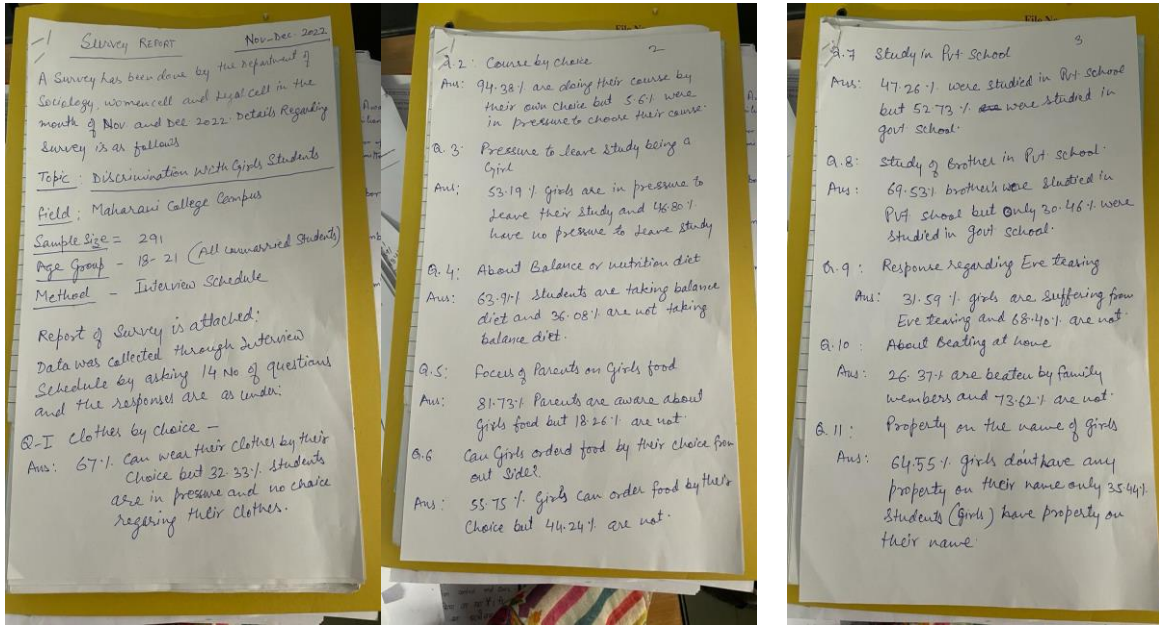 SURVEY REPORT
Nov-Dec. 2022
A Survey has been done by the Department of
Sociology, women cell and Legal cell in the
month of Nov and Dec 2022. Details Regarding
Survey is as follows
Topic : Discrimination with Girls Students
Field : Maharani College Campus
Sample Size = 291
Age Group - 18-21 (All unmarried Students)
Method - Interview Schedule
Report of Survey is attached:
Data was collected through Interview
Schedule by asking 14 No of questions
and the responses are as under:
Q-I Clothes by choice -
Ans: 67% can wear their clothes by their
choice but 32.33% students
are in pressure and no choice
regaring their clothes.
2
Q.2: Course by choice
Ans: 94.38% are doing their course by
their own choice but 5.6% were
in pressure to choose their course.
Q.3: Pressure to leave study being a
Girl
Ans: 53.19% girls are in pressure to
leave their study and 46.80%
have no pressure to leave study
Q.4: About Balance or nutrition diet
Ans: 63.91% students are taking balance
diet and 36.08% are not taking
balance diet.
Q.5: Focus of Parents on Girls food
Ans: 81.73% Parents are aware about
Girls food but 18.26% are not.
Q.6 Can Girls orderd food by their choice from
out side?
Ans: 55.75% Girls can order food by their
choice but 44.24% are not.
3
Q.7 Study in Pvt School
Ans: 47.26% were studied in Pvt School
but 52.73% were studied in
govt school.
Q.8: Study of Brother in Pvt School.
Ans: 69.53% brother's were studied in
Pvt shool but only 30.46% were
studied in govt school.
Q.9: Response regarding Eve tearing
Ans: 31.59% girls are suffering from
Eve tearing and 68.40% are not.
Q.10: About Beating at home
Ans: 26.37% are beaten by family
members and 73.62% are not.
Q.11: Property on the name of girls
Ans: 64.55% girls don't have any
property on their name only 35.44%
students (girls) have property on
their name.